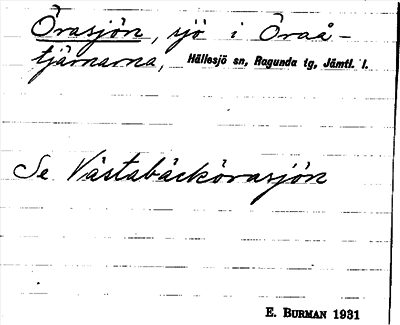 Örasjön, sjö i Öraå-
tjärnarna, Hällesjö sn, Ragunda tg, Jämtl. l.
Se Västabäckörasjön
E. BURMAN 1931